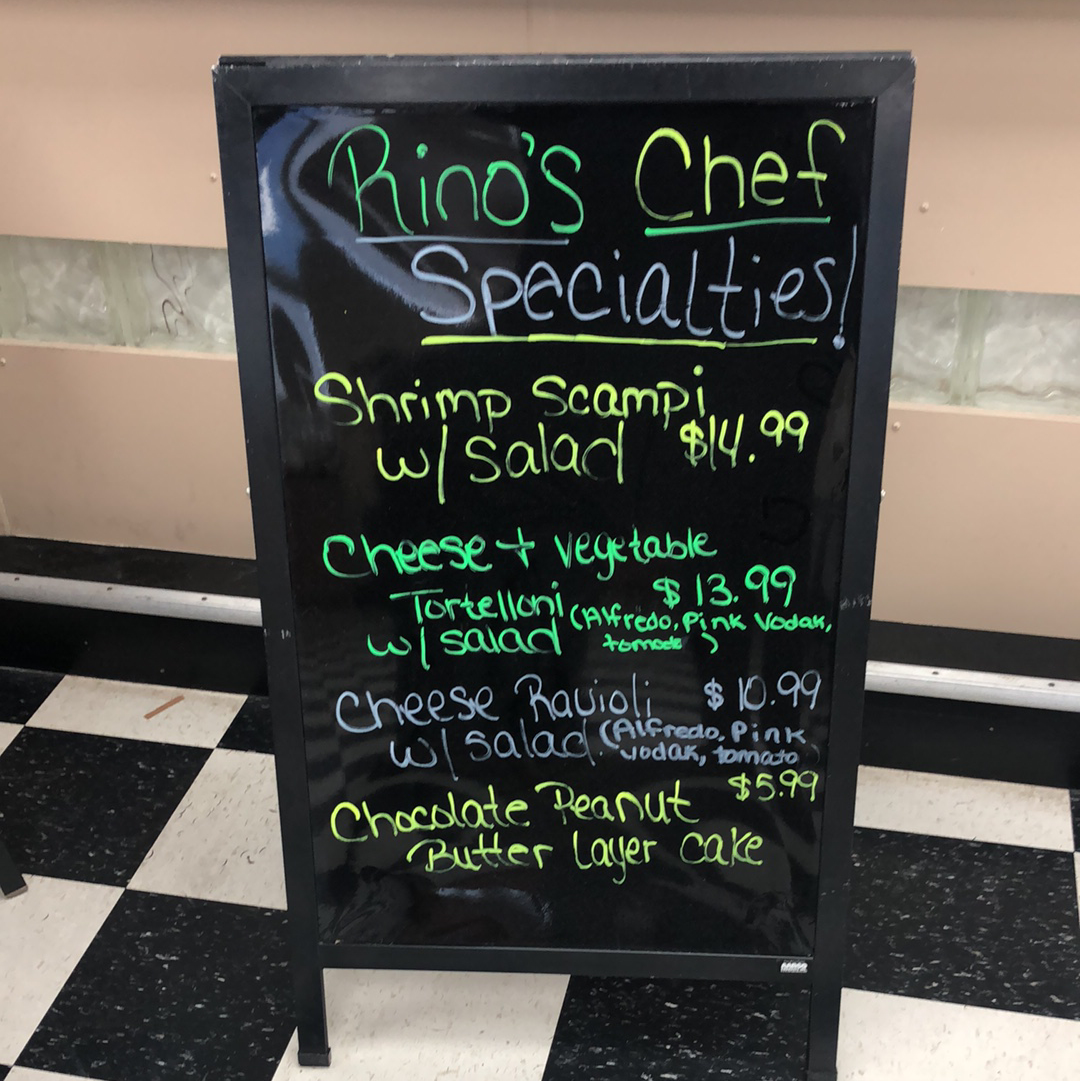 Rino's Chef
Specialties!
Shrimp Scampi
w/ Salad $14.99
Cheese + vegetable
Tortelloni $13.99
w/ salad (Alfredo, Pink Vodak,
)
Cheese Ravioli $10.99
w/ salad (Alfredo, Pink
vodak, tomato
Chocolate Peanut $5.99
Butter Layer cake